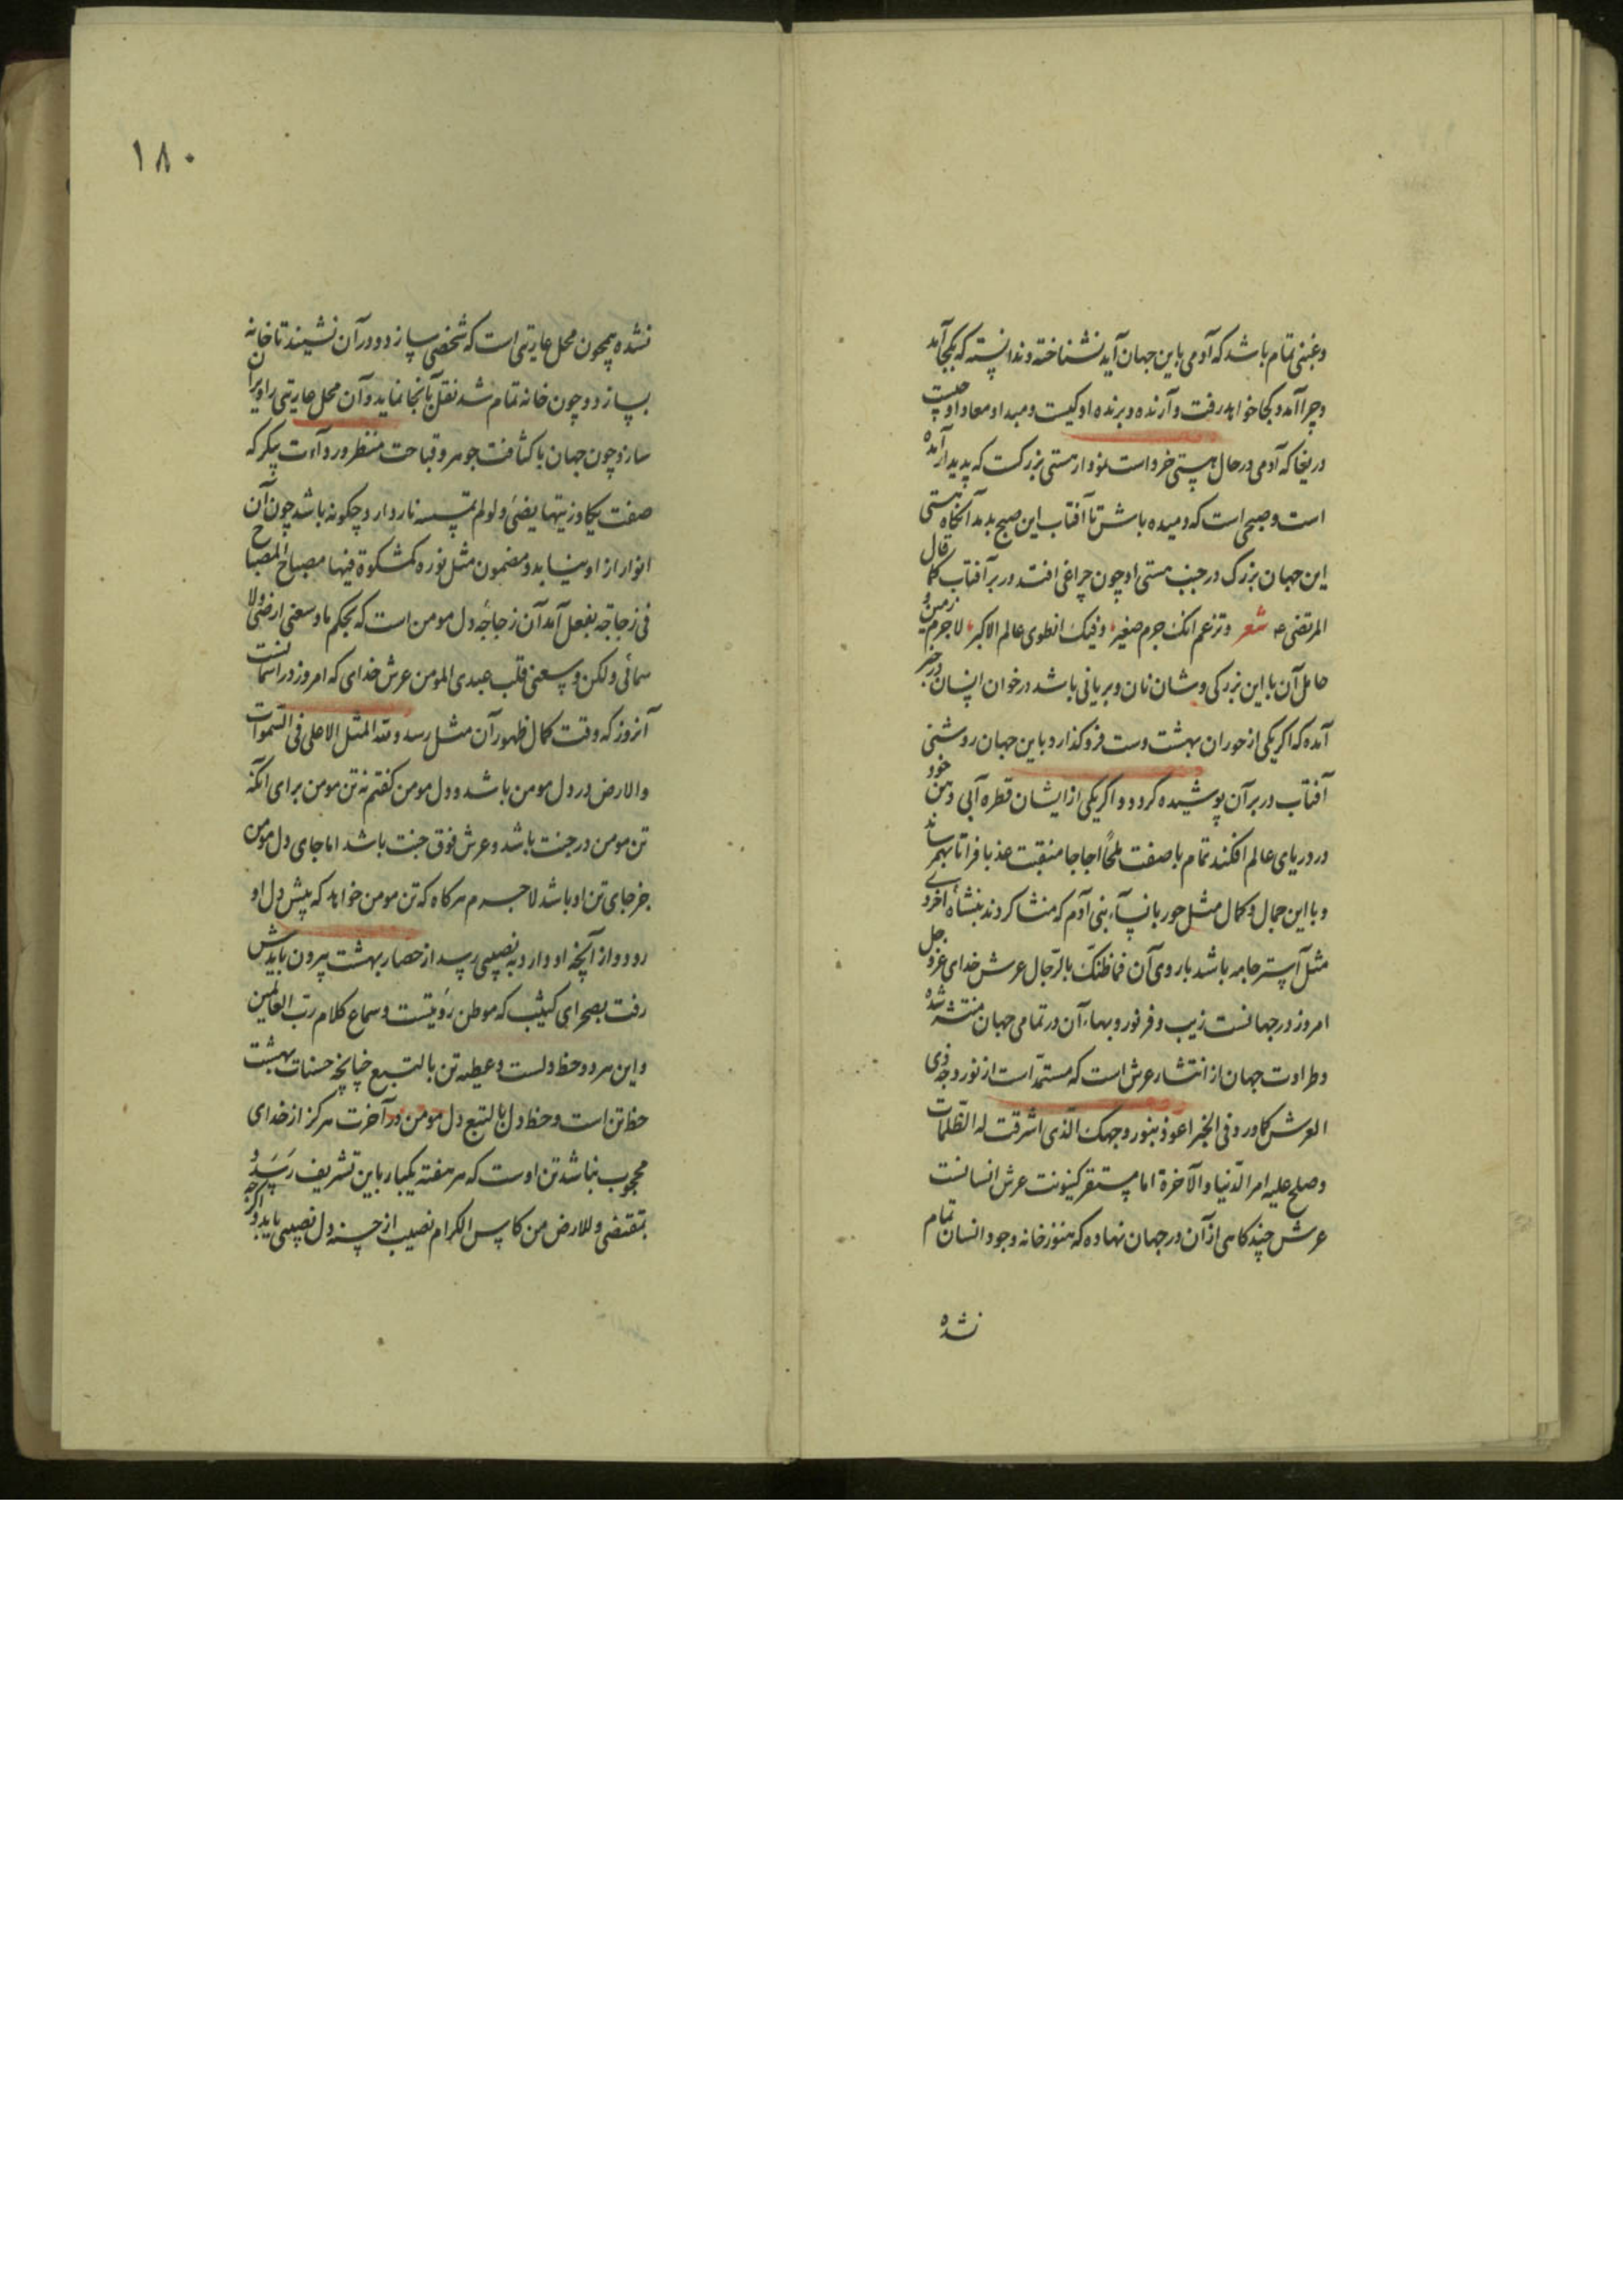 و غبنی تمام باشد که آدمی باین جهان آید نشناخته و ندانسته که بکجا آمد
و چرا آمد و کجا خواهد رفت و آرنده و برنده او کیست و مبدا و معاد او چیست
دریغا که آدمی در حال هستی خرد است لزو از هستی بزرکست که پدید آرنده آمده
است و صبحی است که دمیده باش تا آفتاب این صبح بدمد آنکاه هستی
این جهان بزرک در جنب هستی او چون چراغی افتد در بر آفتاب کما قال
المرتضی عه شعر وتزعم انک جرم صغیر وفیک انطوی عالم الاکبر لاجرم زمین و
حامل آن با این بزرکی و شان نان و بریانی باشد در خوان انسان در خبر
آمده که اکر یکی از حوران بهشت دست فرو کذارد باین جهان روشنی
آفتاب در بر آن پوشیده کردد و اکر یکی از ایشان قطره آبی دهن خود
در دریای عالم افکند تمام با صفت ملحا اجاجا منقبت عذبا فراتا بهم رساند
و با این جمال و کمال مثل حور با نساء بنی آدم که منشا کردند بنشأه اخروی
مثل آستر جامه باشد با روی آن فما ظنک بالرجال عرش خدای عز و جل
امروز در جهانست زیب و فر نور و بهاء آن در تمامی جهان منتشر شده
و طراوت جهان از انتشار عرش است که مستمد است از نور وجه ذی
العرش کما ورد فی الخبر اعوذ بنور وجهک الذی اشرقت له الظلمات
وصلح علیه امر الدنیا والآخرة اما مستقر کینونت عرش انسانست
عرش چند کاهی از آن در جهان نهاده که هنوز خانه وجود انسان تمام
نشده
١٨٠
نشده همچون محل عاریتی است که شخصی بسازد و در آن نشیند تا خانه
بسازد و چون خانه تمام شد نقل بآنجا نماید و آن محل عاریتی را ویران
سازد چون جهان با کثافت جوهر و قباحت منظر و رداءت پیکر که
صفت یکاد زیتها یضئ ولو لم تمسسه نار دارد چکونه باشد چون آن
انوار از او بیابد و مضمون مثل نوره کمشکوة فیها مصباح المصباح
فی زجاجه بفعل آمد آن زجاجه دل مومن است که بحکم ما وسعنی ارضی ولا
سمائی ولکن وسعنی قلب عبدی المومن عرش خدای که امروز در آسمانست
آنروز که وقت کمال ظهور آن مثل رسد ولله المثل الاعلی فی السموات
والارض در دل مومن باشد و دل مومن کفتم نه تن مومن برای آنکه
تن مومن در جنت باشد و عرش فوق جنت باشد اما جای دل مومن
جز جای تن او باشد لاجرم هر کاه که تن مومن خواهد که پیش دل او
رود و از آنچه او دارد به نصیبی رسد از حصار بهشت بیرون بایدش
رفت بصحرای کثیب که موطن رؤیتست و سماع کلام رب العالمین
و این هر دو حظ دلست و عطیه تن بالتبع چنانچه حسنات بهشت
حظ تن است و حظ دل بالتبع دل مومن در آخرت هرکز از خدای
محجوب نباشد تن اوست که هر هفته یکبار باین تشریف رسد و
بمقتضی وللارض من کاس الکرام نصیب از چشمه دل نصیبی یابد و اکر چه